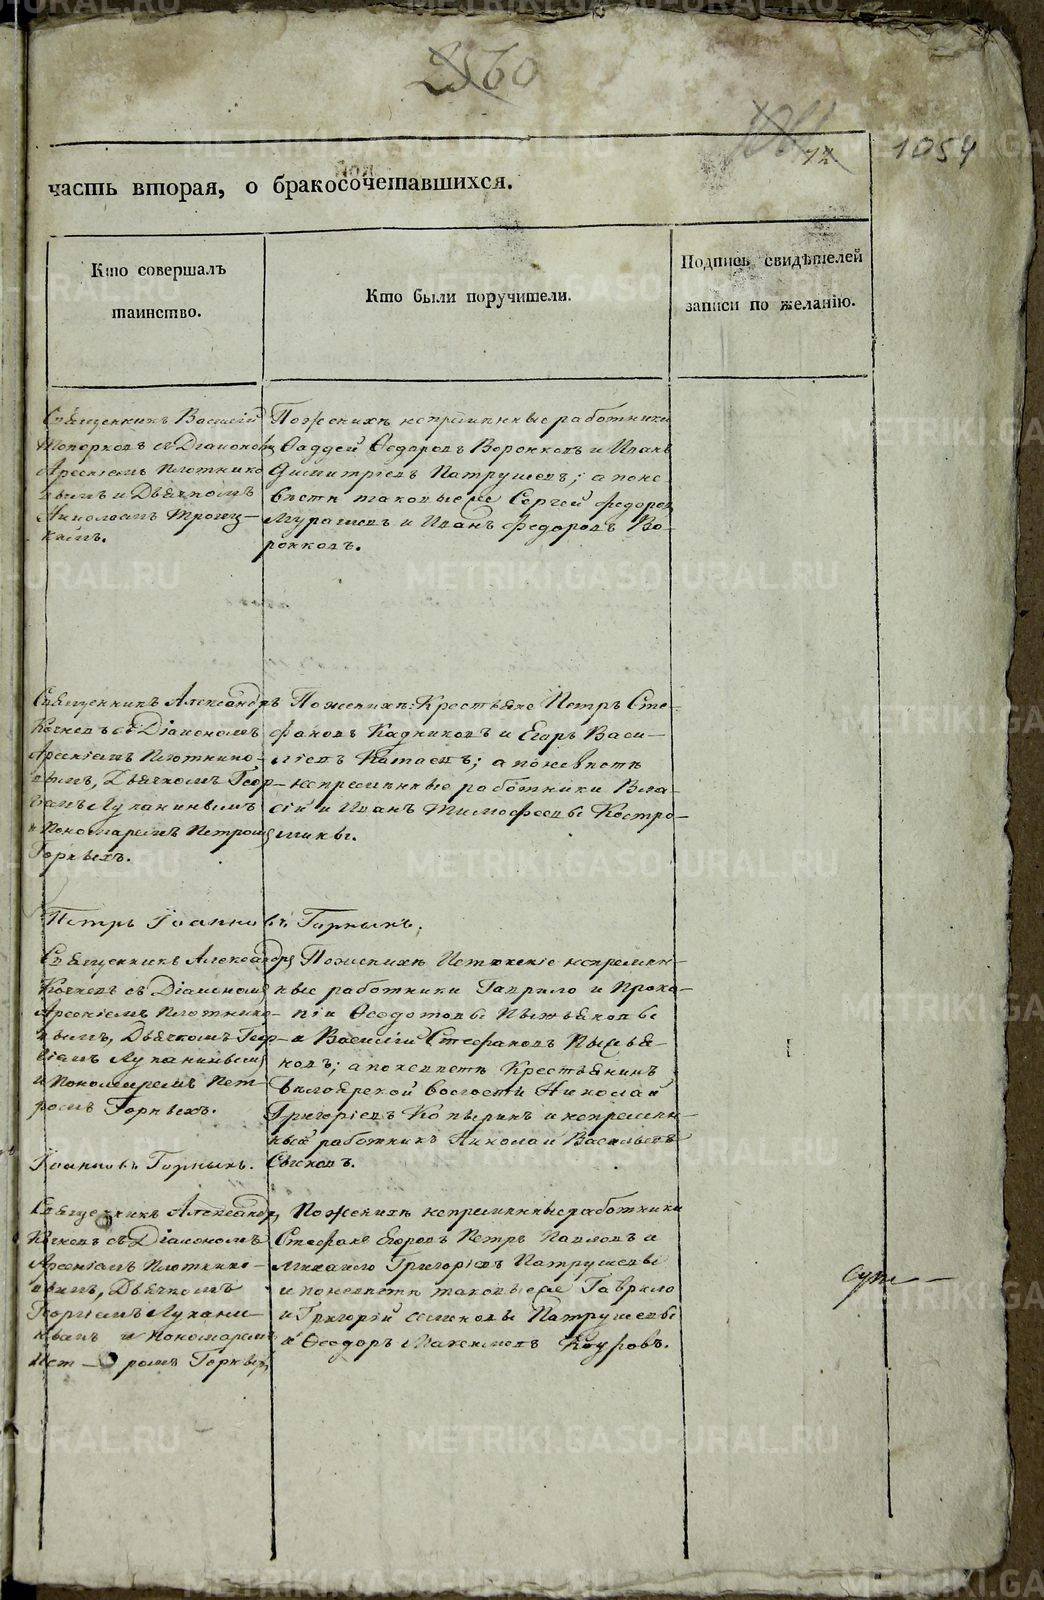 260
12
1054
часть вторая, о бракосочетавшихся.
Кто совершалъ
таинство.
Кто были поручители.
Подпись свидѣтелей
записи по желанію.
Священникъ Василій
Топорковъ съ Діакономъ
Арсеніемъ Плотнико
вымъ и Дьячкомъ
Николаемъ Троиц-
кимъ.
По женихѣ непремѣнные работники
Фаддей Ѳедоровъ Воронковъ и Иванъ
Димитріевъ Патрушевъ; а по не
вѣстѣ таковые же Сергей Федоров
Мурашевъ и Иванъ Федоровъ Во-
ронковъ.
Священникъ Александръ
Кочневъ съ Діакономъ
Арсеніемъ Плотнико-
вымъ, Дьячкомъ Геор-
гіемъ Луканинымъ
и Пономаремъ Петромъ
Горныхъ.
По женихѣ: Крестьяне Петръ Сте-
фановъ Кадниковъ и Егоръ Васи-
лієвъ Катаевъ; а по невѣстѣ
непремѣнные работники Вла-
сій и Иванъ Тимофеевы Костро-
мины.
Петръ Іоанновъ Горныхъ.
Священникъ Александръ
Кочневъ съ Діакономъ
Арсеніемъ Плотнико-
вымъ, Дьячкомъ Геор-
гіемъ Луканинымъ
и Пономаремъ Пет-
ромъ Горныхъ.
Іоанновъ Горныхъ.
По женихѣ непремѣн-
ные работники Гаврило и Проко-
пій Ѳедотовы Пьянковы
и Василій Стефановъ
а по невѣстѣ Крестьянинъ
Бѣлоярской волости Николай
Григоріевъ Копыринъ и непремѣн-
ный работникъ Николай Васильевъ
Священникъ Александръ
Кочневъ съ Діакономъ
Арсеніемъ Плотнико-
вымъ, Дьячкомъ
Георгіемъ Лукани-
нымъ и Пономаремъ
Пет-ромъ Горныхъ
По женихѣ непремѣнные работники
Стефанъ Егоровъ Петръ Павловъ и
Михайло Григоріевъ Патрушевы
и по невѣстѣ таковые же Гаврило
и Григорій Семеновы Патрушевы
и Ѳеодоръ Максимовъ Кауровъ.
METRIKI.GASO-URAL.RU